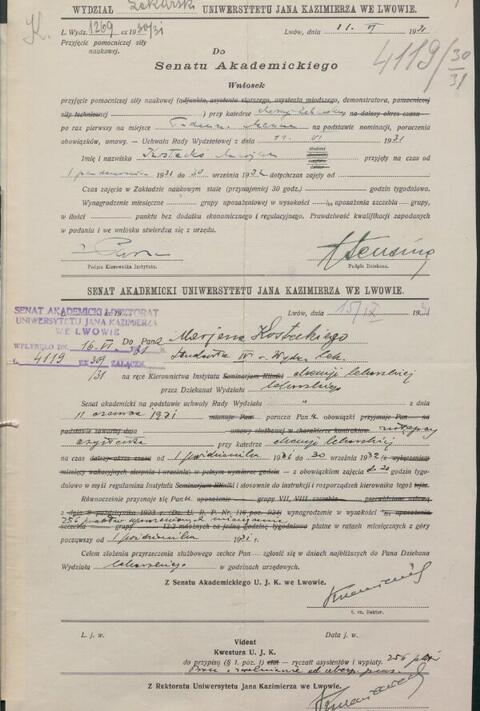 WYDZIAŁ Lekarski UNIWERSYTETU JANA KAZIMIERZA WE LWOWIE.
L. Wydz. 1269 ex 30/31
Lwów, dnia 11. VI 1931
Przyjęcie pomocniczej siły
naukowej.
4119/30/31
K.
Do
Senatu Akademickiego
Wniosek
przyjęcie pomocniczej siły naukowej (adjunkta, asystenta starszego, asystenta młodszego, demonstratora, pomocniczej
siły technicznej) przy katedrze na dalszy okres czasu
po raz pierwszy na miejsce na podstawie nominacji, poruczenia
obowiązków, umowy. — Uchwała Rady Wydziałowej z dnia 11 VI 1931
Imię i nazwisko przyjęty na czas
1 października 1931 do 30 września 1932 dotychczas zajęty od
Czas zajęcia w Zakładzie naukowym stale (przynajmniej 30 godz.) godzin tygodniowo.
Wynagrodzenie miesięczne grupy uposażeniowej w wysokości uposażenia szczebla grupy,
w ilości punktu bez dodatku ekonomicznego i regulacyjnego. Prawdziwość kwalifikacji zapodanych
w podaniu i we wniosku stwierdza się z urzędu.
Podpis Kierownika Instytutu.
Podpis Dziekana.
SENAT AKADEMICKI UNIWERSYTETU JANA KAZIMIERZA WE LWOWIE.
Lwów, dnia 15/IX 193
SENAT AKADEMICKI I REKTORAT
UNIWERSYTETU JANA KAZIMIERZA
WE LWOWIE
WPŁYNĘŁO DN. 16. VI. 31
L. 4119 EX 30/31 ZAŁĄCZ.
Do Pana Marjana Kosteckiego
Studenta IV r. Wydz. lek.
na ręce Kierownictwa Instytutu Seminarjum Kliniki chemji lekarskiej
przez Dziekanat Wydziału lekarskiego
Senat akademicki na podstawie uchwały Rady Wydziału " z dnia
11 czerwca 1931 mianuje Pan porucza Panu obowiązki przyjmuje Pan na
podstawie umowy służbowej w charakterze kontraktow.
asystenta przy katedrze chemji lekarskiej
na czas dalszy okres czasu od 1 października 1931 do 30 września 1932 (z wyłączeniem
miesięcy wakacyjnych sierpnia i września) w pełnym wymiarze godzin — z obowiązkiem zajęć do 20 godzin tygo-
dniowo w myśl regulaminu Instytutu Seminarjum Kliniki i stosownie do instrukcji i rozporządzeń kierownika tegoż
Równocześnie przyznaje się Panu uposażenie grupy VII, VIII szczebla
października 1923 r. (Dz. U. R. P. Nr. 116 poz. 924) wynagrodzenie w wysokości uposażenia
szczebla grupy tygodniowo płatne w ratach miesięcznych z góry
począwszy od 1 października 1931 r.
Celem złożenia przyrzeczenia służbowego zechce Pan zgłosić się w dniach najbliższych do Pana Dziekana
Wydziału lekarskiego w godzinach urzędowych.
Z Senatu Akademickiego U. J. K. we Lwowie.
t. cz. Rektor.
L. j. w.
Data j. w.
Vident
Kwestura U. J. K.
do przypisu (§ 1. poz. f.) etat — ryczałt asystentów i wypłaty. 256 pkt
Z Rektoratu Uniwersytetu Jana Kazimierza we Lwowie.